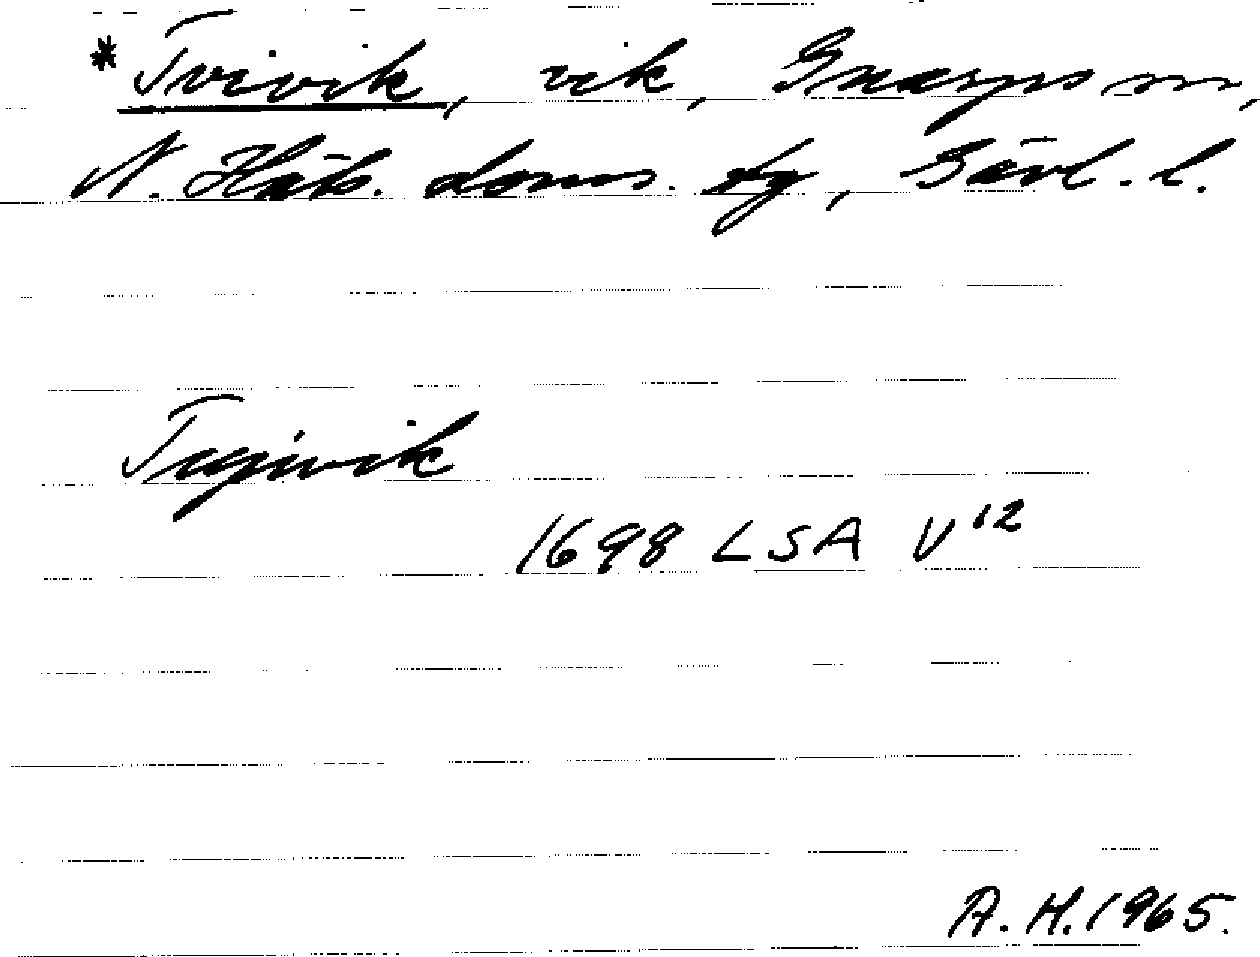 *Tvivik, vik, Gnarps sn,
N. Häls. doms. dg, Gävl. l.
Tugivik
1698 LSA V¹²
A. H. 1965.